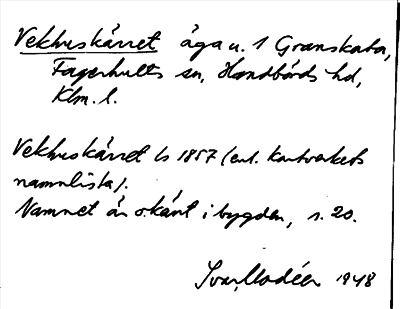 Vekhuskärret äga u. 1 Granskata,
Fagerhults sn, Handbörds hd,
Klm. l.
Vekhuskärret ls 1857 (enl. kartverkets
namnlista).
Namnet är okänt i bygden, s. 20.
Ivar Modéer 1948